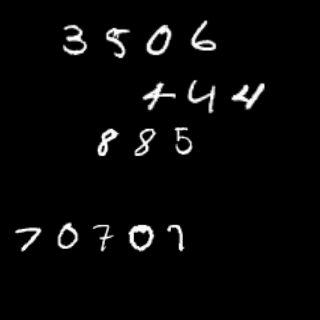 3506
444
885
70707